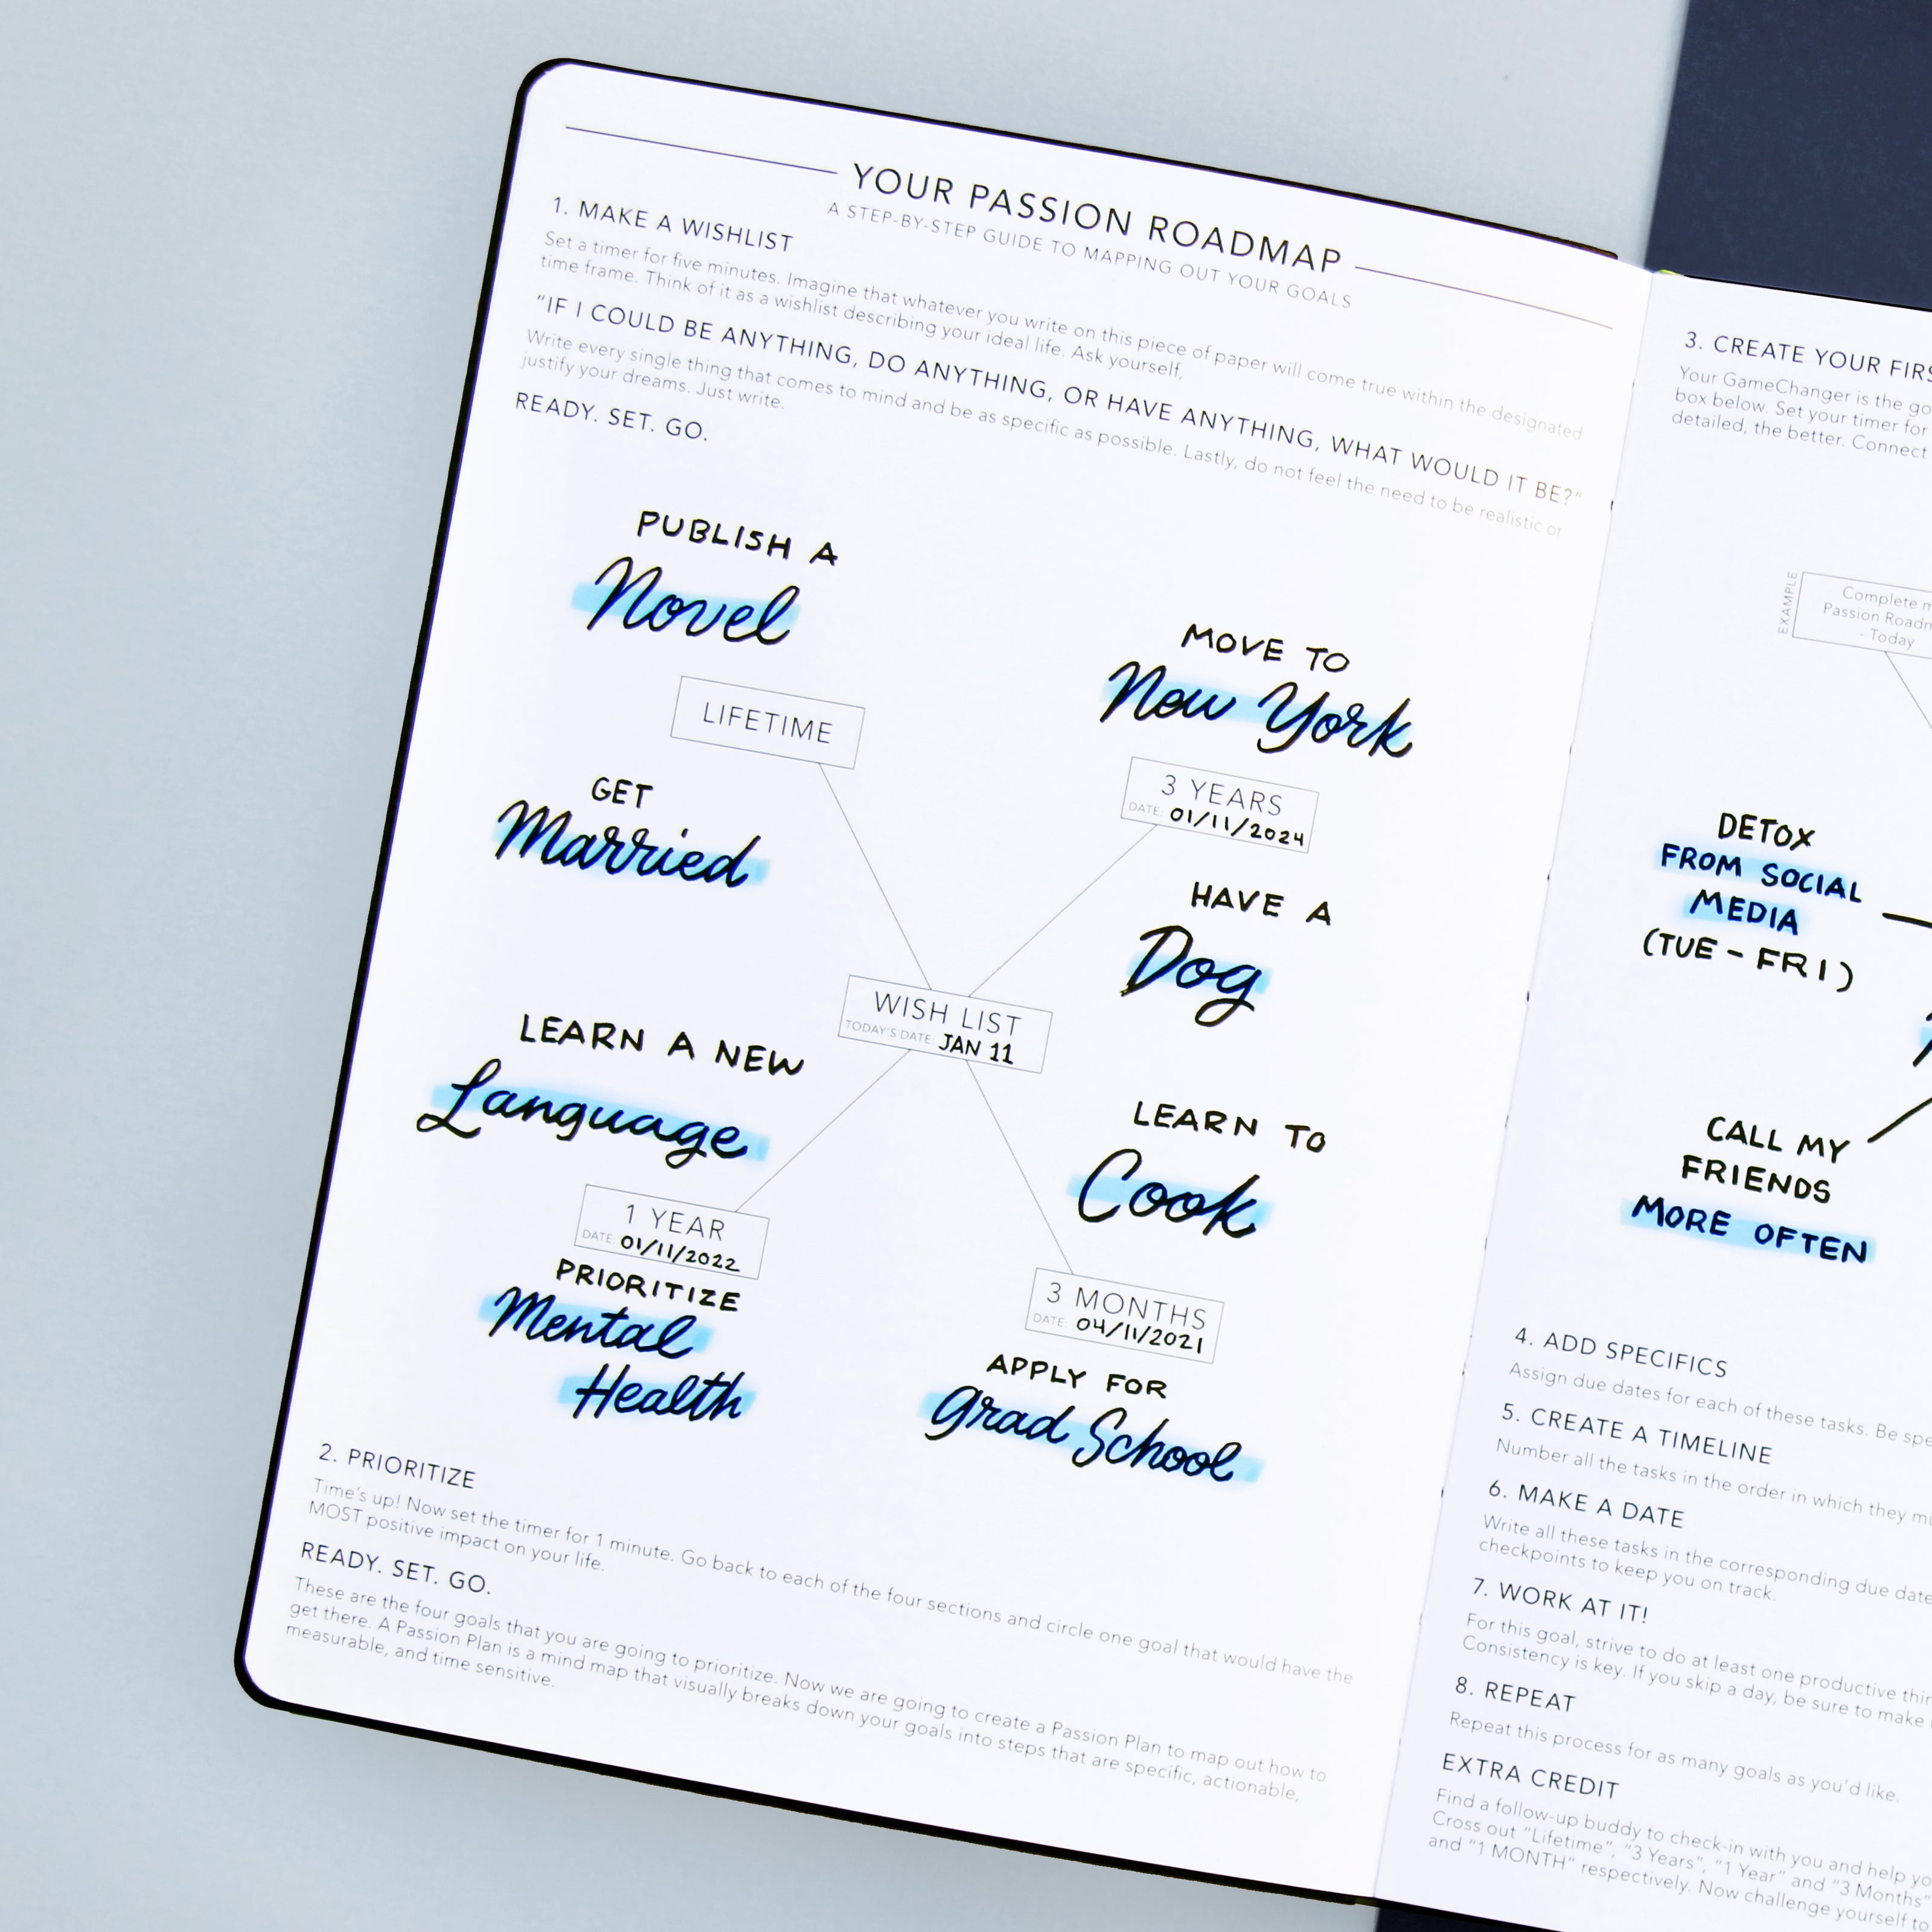 YOUR PASSION ROADMAP
A STEP-BY-STEP GUIDE TO MAPPING OUT YOUR GOALS
1. MAKE A WISHLIST
Set a timer for five minutes. Imagine that whatever you write on this piece of paper will come true within the designated
time frame. Think of it as a wishlist describing your ideal life. Ask yourself,
"IF I COULD BE ANYTHING, DO ANYTHING, OR HAVE ANYTHING, WHAT WOULD IT BE?"
Write every single thing that comes to mind and be as specific as possible. Lastly, do not feel the need to be realistic or
justify your dreams. Just write.
READY. SET. GO.
PUBLISH A
Novel
LIFETIME
GET
Married
MOVE TO
New York
3 YEARS
DATE: 01/11/2024
HAVE A
Dog
WISH LIST
TODAY'S DATE: JAN 11
LEARN A NEW
Language
1 YEAR
DATE: 01/11/2022
PRIORITIZE
Mental
Health
LEARN TO
Cook
3 MONTHS
DATE: 04/11/2021
APPLY FOR
Grad School
2. PRIORITIZE
Time's up! Now set the timer for 1 minute. Go back to each of the four sections and circle one goal that would have the
MOST positive impact on your life.
READY. SET. GO.
These are the four goals that you are going to prioritize. Now we are going to create a Passion Plan to map out how to
get there. A Passion Plan is a mind map that visually breaks down your goals into steps that are specific, actionable,
measurable, and time sensitive.
3. CREATE YOUR
Your GameChanger is the
box below. Set your timer for
detailed, the better. Connect
EXAMPLE
Complete
Passion
- Today
DETOX
FROM SOCIAL
MEDIA
(TUE - FRI)
CALL MY
FRIENDS
MORE OFTEN
4. ADD SPECIFICS
Assign due dates for each of these tasks. Be
5. CREATE A TIMELINE
Number all the tasks in the order in which they
6. MAKE A DATE
Write all these tasks in the corresponding due
checkpoints to keep you on track.
7. WORK AT IT!
For this goal, strive to do at least one productive
Consistency is key. If you skip a day, be sure to make
8. REPEAT
Repeat this process for as many goals as you'd like.
EXTRA CREDIT
Find a follow-up buddy to check-in with you and help
Cross out "Lifetime", "3 Years", "1 Year" and "3 Months"
and "1 MONTH" respectively. Now challenge yourself to